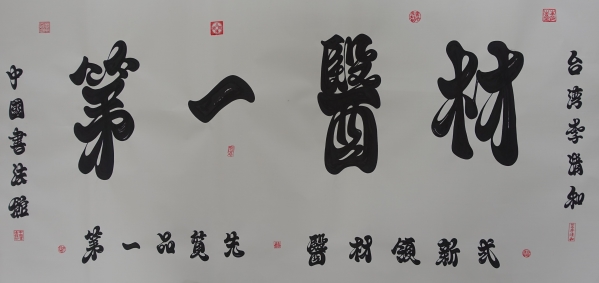 第一醫材
中國書法
台湾李清和
第一品質先 醫材領新式